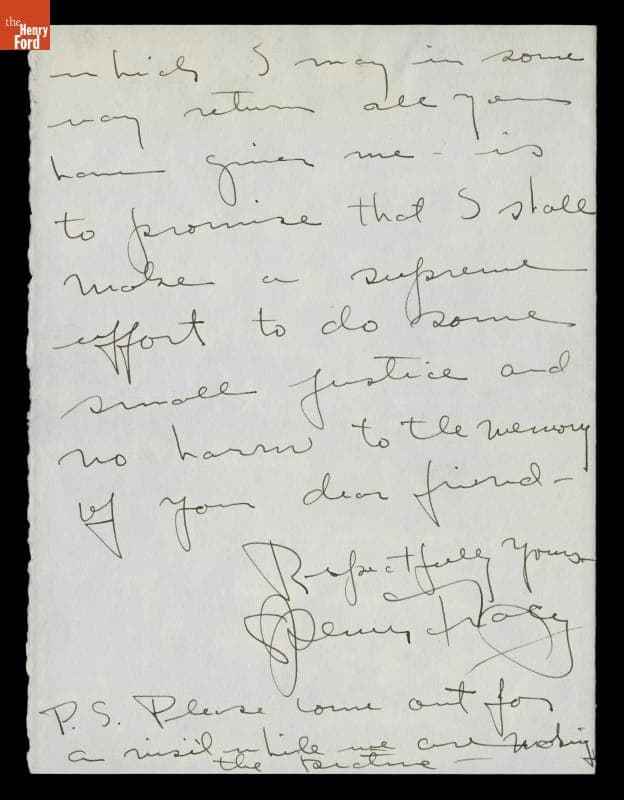 the
Henry
Ford
which I may in some
way return all you
have given me - is
to promise that I shall
make a supreme
effort to do some
small justice and
no harm to the memory
of your dear friend -
Respectfully Yours
Spencer Tracy
P.S. Please come out for
a visit while we are making
the picture -